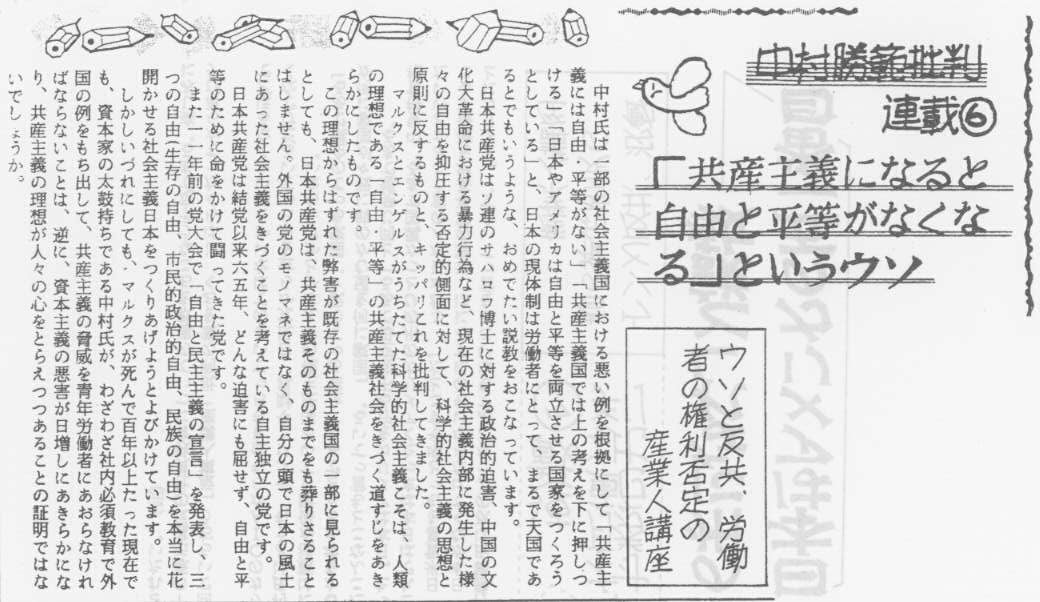 中村勝範批判
連載⑥
「共産主義になると
自由と平等がなくな
る」というウソ
ウソと反共、労働
者の権利否定の
産業人講座
中村氏は一部の社会主義国における悪い例を根拠にして「共産主
義には自由・平等がない」「共産主義国では上の考えを下に押しつ
ける」「日本やアメリカは自由と平等を両立させる国家をつくろう
としている」と、日本の現体制は労働者にとって、まるで天国であ
るとでもいうような、おめでたい説教をおこなっています。
日本共産党はソ連のサハロフ博士に対する政治的迫害、中国の文
化大革命における暴力行為など、現在の社会主義内部に発生した様
々の自由を抑圧する否定的側面に対して、科学的社会主義の思想と
原則に反するものと、キッパリこれを批判してきました。
マルクスとエンゲルスがうちたてた科学的社会主義こそは、人類
の理想である「自由・平等」の共産主義社会をきづく道すじをあき
らかにしたものです。
この理想からはずれた弊害が既存の社会主義国の一部に見られる
としても、日本共産党は、共産主義そのものまでをも葬りさること
はしません。外国の党のモノマネではなく、自分の頭で日本の風土
にあった社会主義をきづくことを考えている自主独立の党です。
日本共産党は結党以来六五年、どんな迫害にも屈せず、自由と平
等のために命をかけて闘ってきた党です。
また一一年前の党大会で「自由と民主主義の宣言」を発表し、三
つの自由(生存の自由、市民的政治的自由、民族の自由)を本当に花
開かせる社会主義日本をつくりあげようとよびかけています。
しかしいづれにしても、マルクスが死んで百年以上たった現在で
も、資本家の太鼓持ちである中村氏が、わざわざ社内必須教育で外
国の例をもち出して、共産主義の脅威を青年労働者にあおらなけれ
ばならないことは、逆に、資本主義の悪害が日増しにあきらかにな
り、共産主義の理想が人々の心をとらえつつあることの証明ではな
いでしょうか。